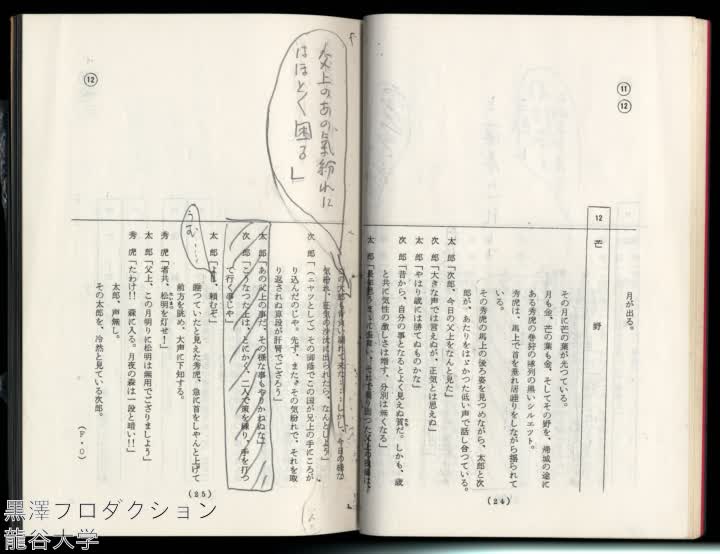 ⑪
⑫
月が出る。
12 芒野
その月に芒の葉が光っている。
月も金、芒の葉も金、そしてその野を、帰城の途に
ある秀虎の巻狩の隊列の黒いシルエット。
秀虎は、馬上で首を垂れ居睡りをしながら揺られて
その秀虎の馬上の後ろ姿を見つめながら、太郎と次
郎が、あたりをはばかった低い声で話し合っている。
太郎「次郎、今日の父上をなんと見た」
次郎「大きな声では言えぬが、正気とは思えぬ」
太郎「やはり歳には勝てぬものかな」
次郎「昔から、自分の事となるとよく見えぬ質だ。しかも、歳
と共に気性の激しさは増す、分別は無くなる」
太郎
(24)
⑫
父上のあの気紛れに
はほとく困る」
気紛れ、正気の沙汰
次郎「(ニヤッとして)その御蔭でこの国が兄上の手にころが
り込んだのじゃ。先ず、また、その気紛れで、それを取
り返されぬ意段が肝腎でござろう」
太郎「あの父上の事だ、その様な事もやりかねぬな」
次郎「こうなった上は、とにかく、二人で策を練り、手を打っ
て行く事じゃ」
うむ……
太郎「頼むぞ」
睡っていたと見えた秀虎、急に首をしゃんと上げて
前方を眺め、大声に下知する。
秀虎「者共、松明を灯せ!」
太郎「父上、この月明りに松明は無用でござりましょう」
秀虎「たわけ!! 森に入る。月夜の森は一段と暗い!!」
太郎、声無し。
その太郎を、冷然と見ている次郎。
(F・O)
(25)
黒澤プロダクション
龍谷大学